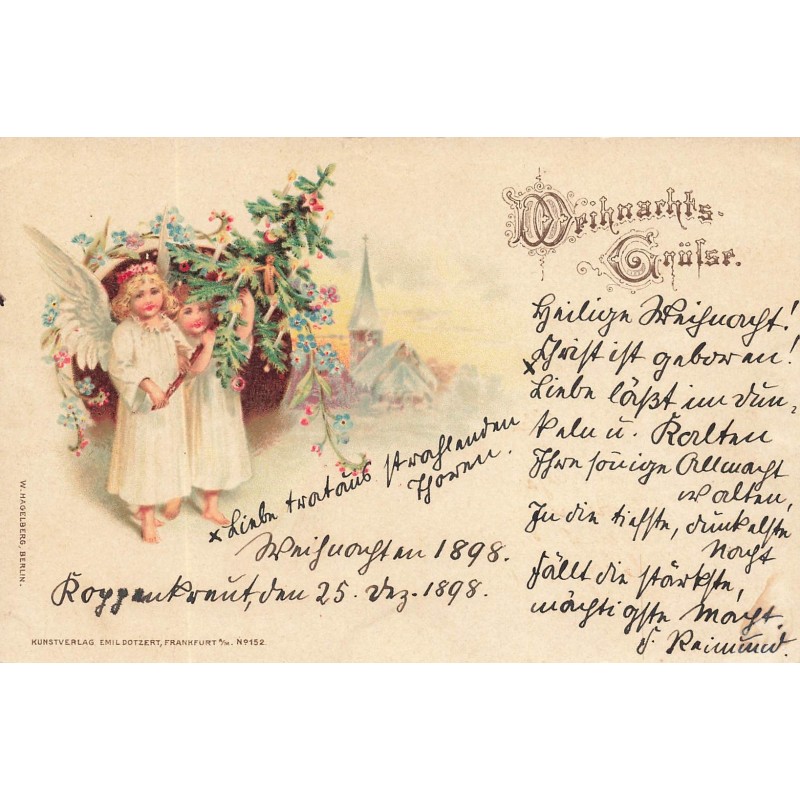 Weihnachts-
Grüße.
Heilige Weihnacht!
x Christ ist geboren!
Liebe läßt im Dun-
keln u. Kalten
Ihre sonige Allmacht
walten,
In die tiefste, dunkelste
Nacht
Fällt die stärkste,
mächtigste Macht.
Reimund.
x Liebe trat aus strahlenden
Thoren.
Weihnachten 1898.
den 25. Dez. 1898.
W. HAGELBERG, BERLIN.
KUNSTVERLAG EMIL DOTZERT, FRANKFURT a/M. No 152.